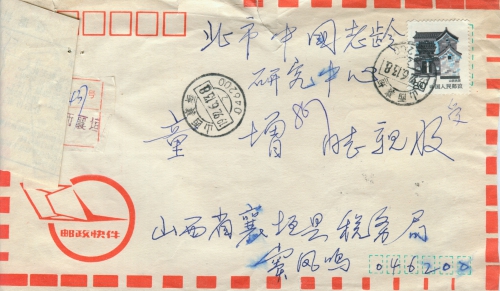 北市中国老龄
研究中心
童增 同志 亲收
山西省襄垣县税务局
窦凤鸣 046200
邮政快件
中国人民邮政
山西襄垣
046200
襄垣